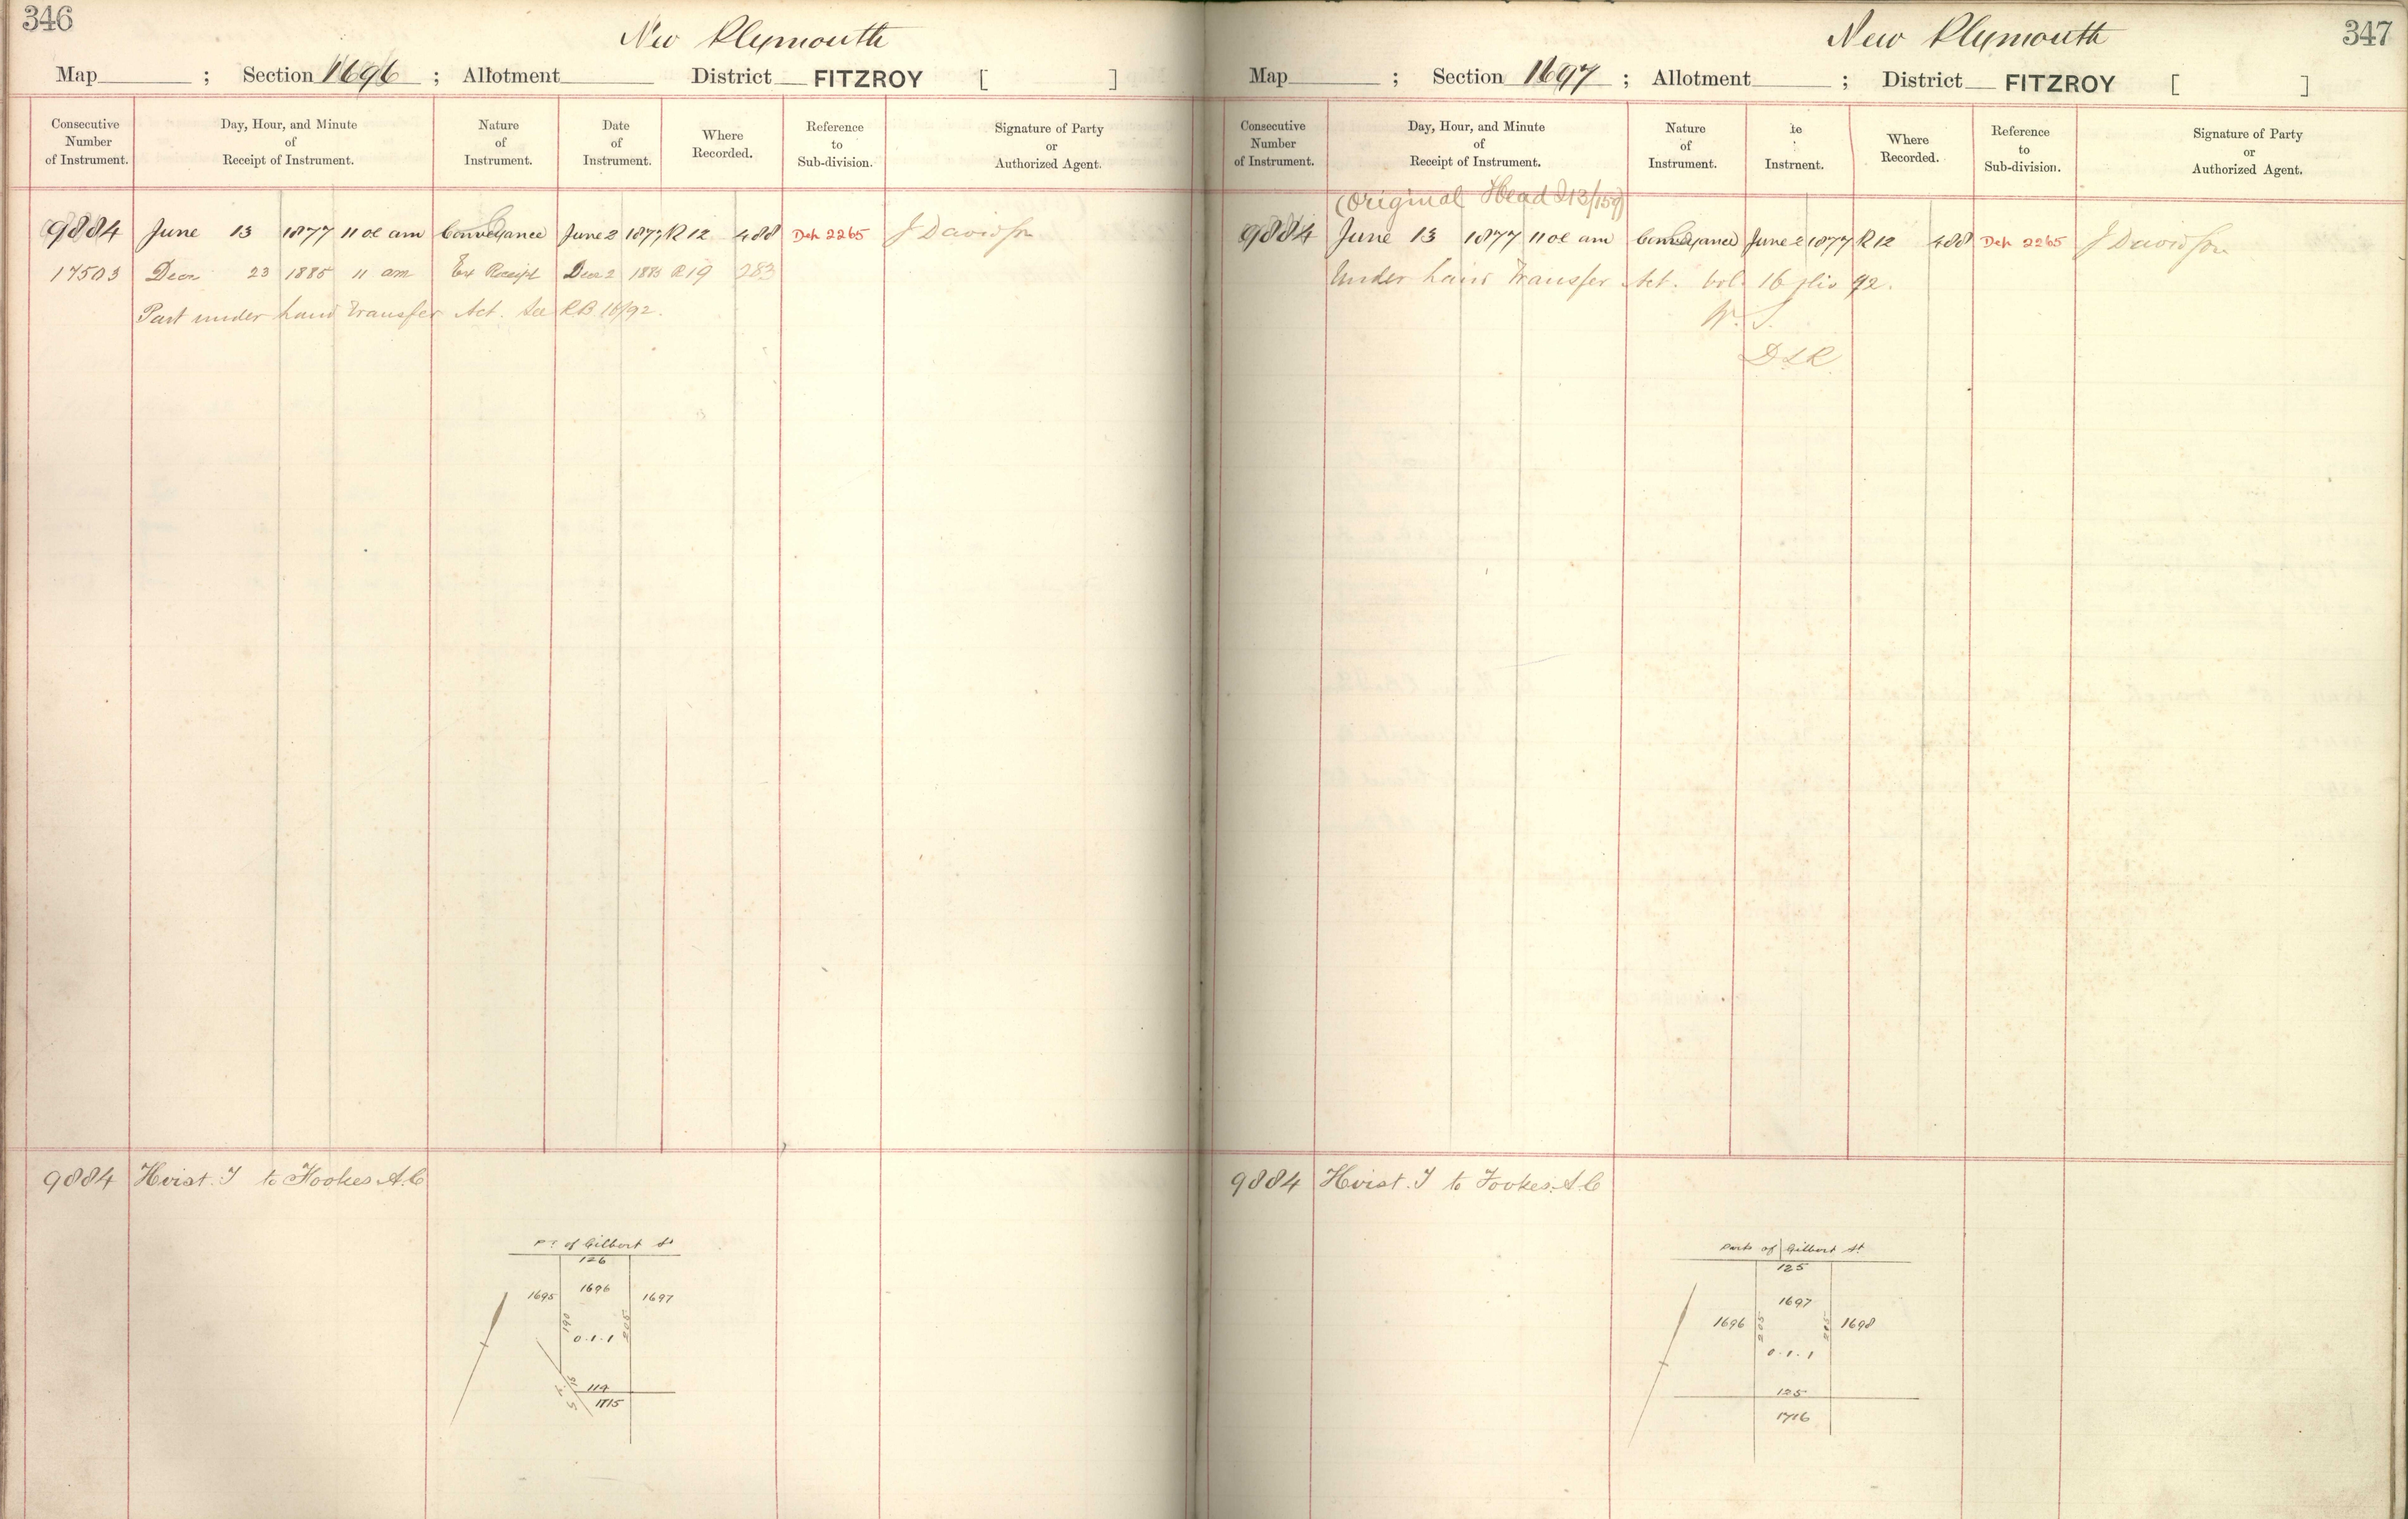 346
New Plymouth
Map ; Section 1696 ; Allotment District FITZROY [ ]
Consecutive Number of Instrument. Day, Hour, and Minute of Receipt of Instrument. Nature of Instrument. Date of Instrument. Where Recorded. Reference to Sub-division. Signature of Party or Authorized Agent.
9884 June 13 1877 11 oc am Conveyance June 2 1877 R 12 488 Deh 2265 J Davidson
17503 Decr 23 1885 11 am Ex Receipt Decr 2 1885 R 19 283
Part under Land Transfer Act. See RB 16/92.
9884 Hoist. J to Fookes A.C
Pt of Gilbert St
126
1695 1696 1697
190 205
0.1.1
119
1715
347
New Plymouth
Map ; Section 1697 ; Allotment ; District FITZROY [ ]
Consecutive Number of Instrument. Day, Hour, and Minute of Receipt of Instrument. Nature of Instrument. te Instrnent. Where Recorded. Reference to Sub-division. Signature of Party or Authorized Agent.
(Original Head D13/159)
9884 June 13 1877 11 oc am Conveyance June 2 1877 R 12 488 Deh 2265 J Davidson
Under Land Transfer Act. Vol. 16 folio 92.
W. S.
DLR
9884 Hoist. J to Fookes. A C
Parts of Gilbert St
125
1697
1696 205 205 1698
0.1.1
125
1716